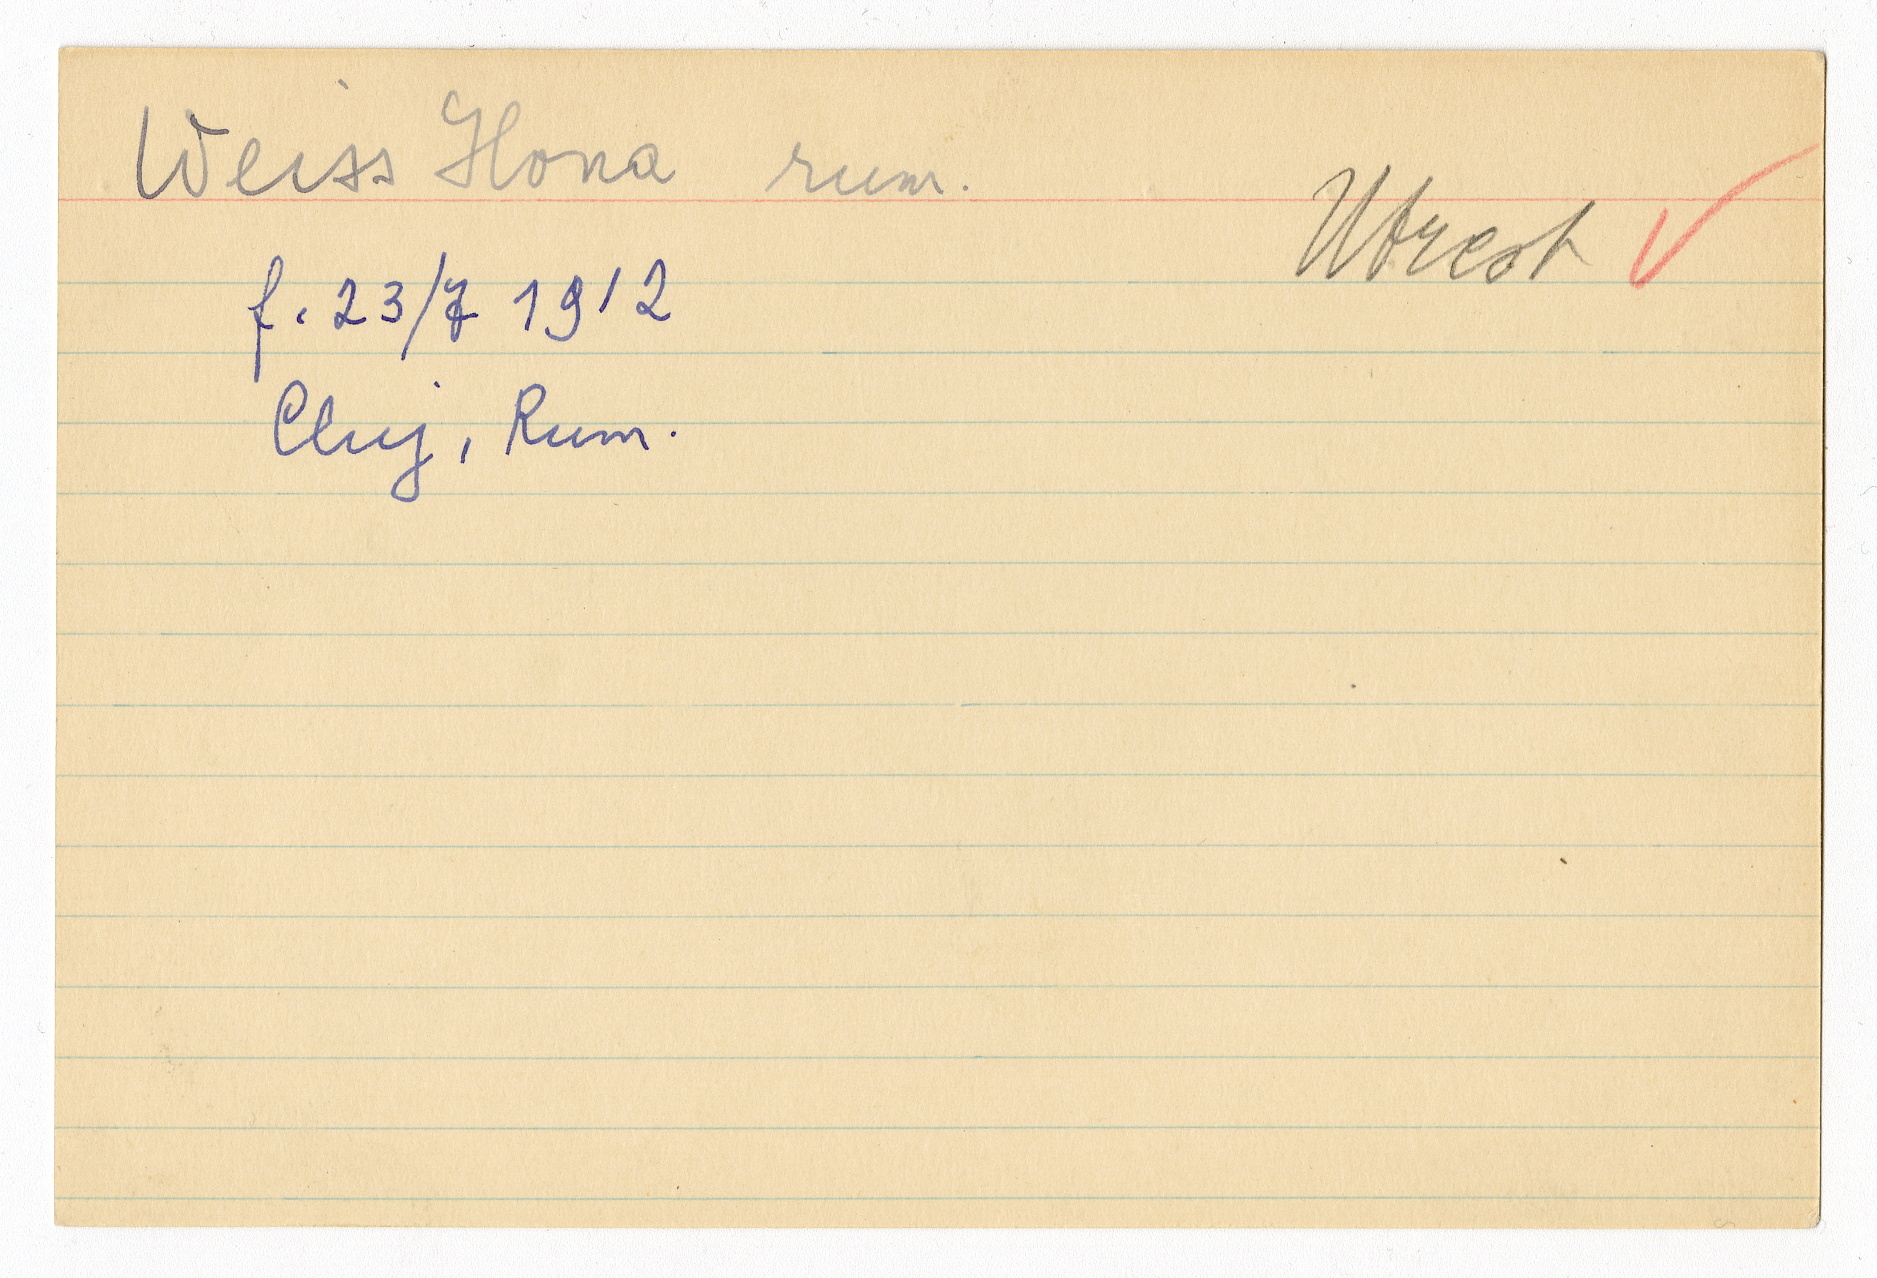 Weiss Ilona rum.
Utrest ✓
f. 23/7 1912
Cluj, Rum.